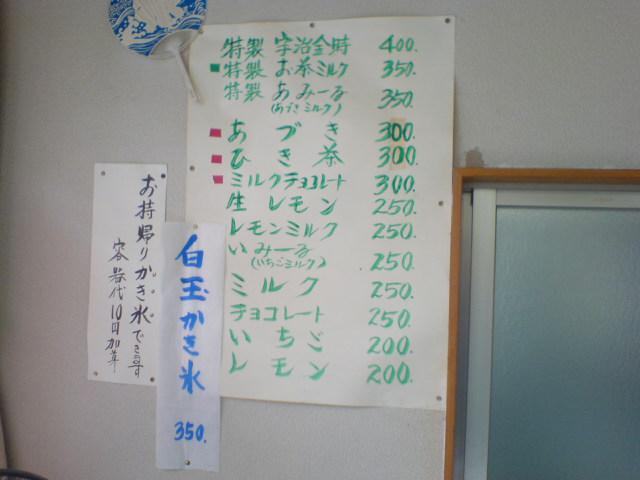 特製 宇治金時 400.
特製 お茶ミルク 350.
特製 あみーる 350.
(あづきミルク)
あづき 300.
ひき茶 300.
ミルクチョコレート 300.
生レモン 250.
レモンミルク 250.
いみーる 250.
(いちごミルク)
ミルク 250.
チョコレート 250.
いちご 200.
レモン 200.
白玉かき氷 350.
お持帰りかき氷できます
容器代10円加算